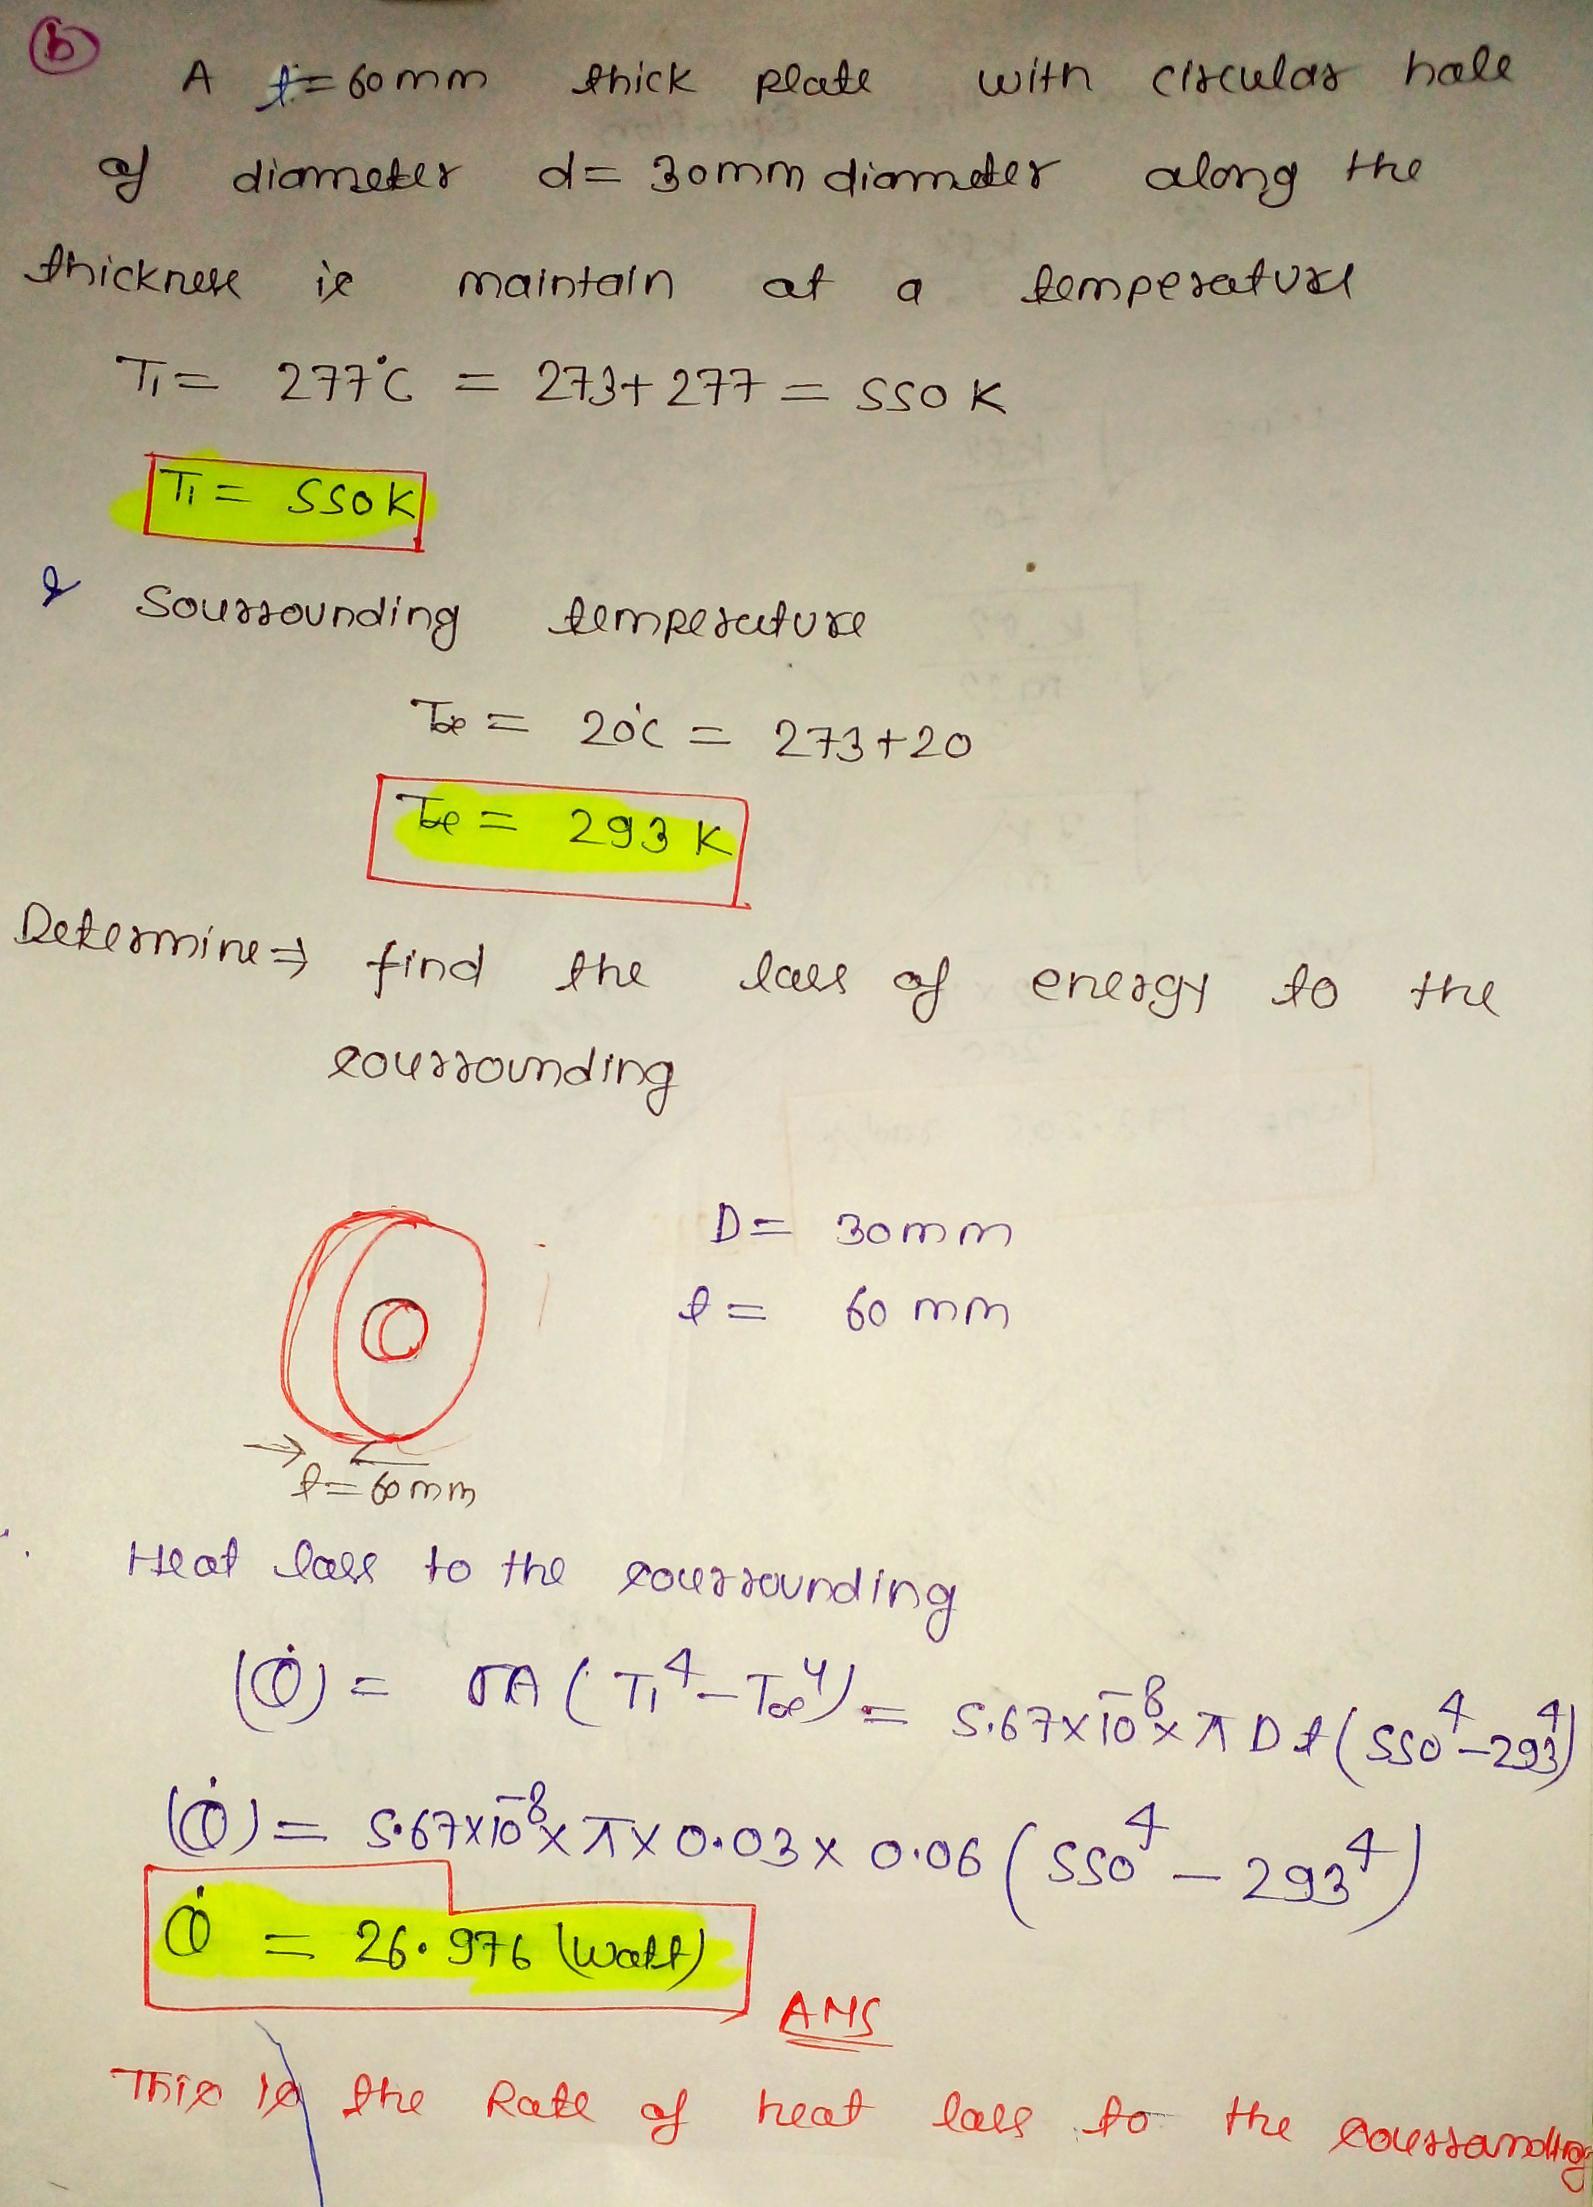 (b)
A t=60mm thick plate with circular hole
of diameter d= 30mm diameter along the
thickness is maintain at a temperature
T1= 277°C = 273+277 = 550 K
T1= 550K
& Sourrounding temperature
T∞ = 20°C = 273+20
T∞ = 293 K
Determine⇒ find the loss of energy to the
sourrounding
D= 30mm
t= 60 mm
t=60mm
Heat loss to the sourrounding
(Q̇) = σA (T1⁴-T∞⁴) = 5.67×10⁻⁸×π D t (550⁴-293⁴)
(Q̇) = 5.67×10⁻⁸×π×0.03×0.06 (550⁴-293⁴)
Q̇ = 26.976 (watt)
ANS
This is the Rate of heat loss to the sourrounding